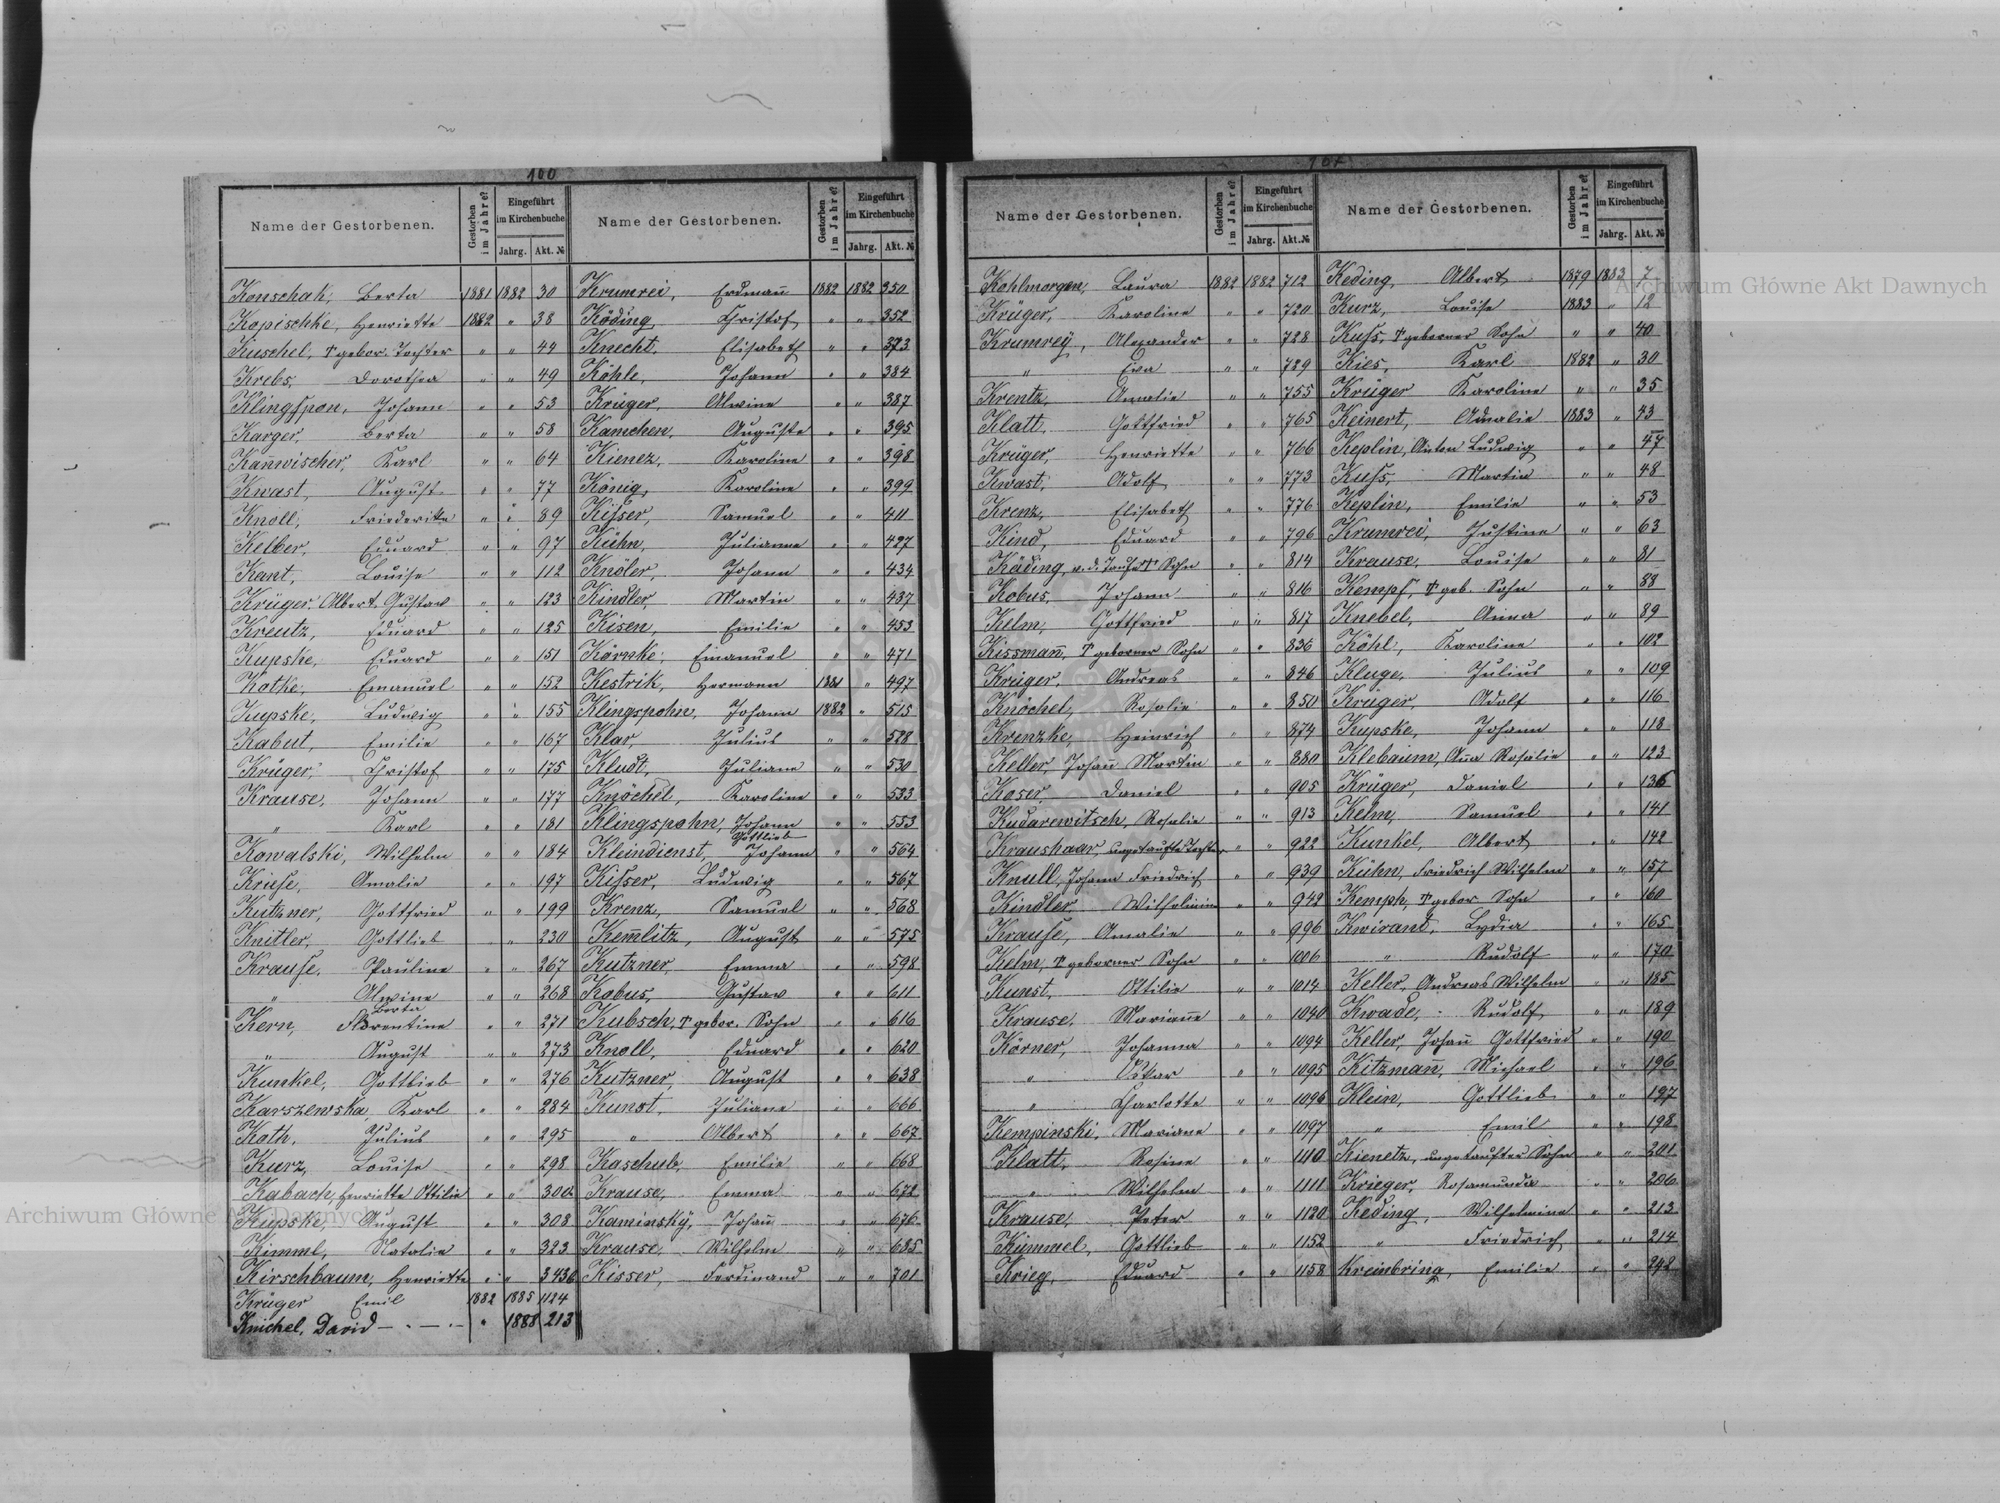 100
Name der Gestorbenen. Gestorben im Jahre? Eingeführt im Kirchenbuche Jahrg. Akt. №
Konschak, Berta 1881 1882 30
Kopischke, Henriette 1882 " 38
Kuschel, † gebor. Tochter " " 44
Krebs, Dorothea " " 49
Klingspon, Johann " " 53
Karger, Berta " " 58
Kan̄wischer, Karl " " 64
Kwast, August " " 77
Knoll, Friederike " " 89
Kelber, Eduard " " 97
Kant, Louise " " 112
Krüger, Albert Gustav " " 123
Kreutz, Eduard " " 125
Kupske, Eduard " " 151
Kotke, Emanuel " " 152
Kupske, Ludwig " " 155
Kabut, Emilie " " 167
Krüger, Christof " " 175
Krause, Johann " " 177
" Karl " " 181
Kowalski, Wilhelm " " 184
Kruse, Amalie " " 197
Kutzner, Gottfried " " 199
Knitler, Gottlieb " 230
Krause, Pauline " " 267
" Alwine " " 268
Kern, Berta Florentine " " 271
" August " " 273
Kunkel, Gottlieb " " 276
Karszewska Karl " " 284
Kath, Julius " " 295
Kurz, Louise " " 298
Kabach, Henriette Ottilie " " 300
Kupske, August " " 308
Kimml, Natalie " " 323
Kirschbaum, Henriette " " 343
Krüger Emil 1882 1885 1124
Knichel, David " 1888 213
Name der Gestorbenen. Gestorben im Jahre? Eingeführt im Kirchenbuche Jahrg. Akt. №
Krumrei, Erdman̄ 1882 1882 350
Köding, Christof " " 352
Knecht, Elisabeth " " 373
Köhle, Johann " " 384
Krüger, Alwine " " 387
Kamchen, Auguste " " 395
Kienez, Karoline " " 398
König, Karoline " " 399
Kisser, Samuel " " 411
Kühn, Julianne " " 427
Knöler, Johann " " 434
Kindler, Martin " " 437
Kisen, Emilie " " 453
Körnke, Emanuel " " 471
Kestrik, Hermann 1881 " 497
Klingspohn, Johann 1882 " 515
Klar, Julius " " 528
Kludt, Juliane " " 530
Knöchel, Karoline " " 533
Klingspahn, Johann Gottlieb " " 553
Kleindienst, Johann " " 564
Kisser, Ludwig " " 567
Krenz, Samuel " " 568
Kem̄litz, August " " 575
Kutzner, Emma " " 598
Kobus, Gustav " " 611
Kubsch, † gebor. Sohn " " 616
Knoll, Eduard " " 620
Kutzner, August " " 638
Kunst, Juliane " " 666
" Albert " " 667
Kaschub, Emilie " " 668
Krause, Emma " " 672
Kaminsky, Johan̄ " " 676
Krause, Wilhelm " " 685
Kisser, Ferdinand " " 701
Name der Gestorbenen. Gestorben im Jahre? Eingeführt im Kirchenbuche Jahrg. Akt. №
Kohlmorgen, Laura 1882 1882 712
Krüger, Karoline " " 720
Krumrey, Alexander " " 728
" Eva " " 729
Krentz, Amalie " " 755
Klatt, Gottfried " " 765
Krüger, Henriette " " 766
Kwast, Adolf " " 773
Krenz, Elisabeth " " 776
Kind, Eduard " " 796
Käding, v. d. Taufe † Sohn " " 814
Kobus, Johann " " 816
Kelm, Gottfried " " 817
Kissman̄, † geborner Sohn " " 836
Krüger, Andreas " " 846
Knöchel, Rosalie " " 850
Krenzke, Heinrich " " 874
Keller, Johan̄ Martin " " 880
Koser, Daniel " " 905
Kudarewitsch, Rosalie " " 913
Kraushaar, ungetaufte Tochter " " 922
Knull, Johann Friedrich " " 939
Kindler, Wilhelmine " " 942
Krause, Amalie " " 996
Kelm, † geborner Sohn " " 1006
Kunst, Ottilie " " 1014
Krause, Marian̄e " " 1040
Körner, Johanna " " 1094
" Oskar " " 1095
" Charlotte " " 1096
Kempinski, Mariane " " 1097
Klatt, Rosine " " 1110
" Wilhelm " " 1111
Krause, Peter " " 1120
Kümmel, Gottlieb " " 1152
Krieg, Eduard " " 1158
Name der Gestorbenen. Gestorben im Jahre? Eingeführt im Kirchenbuche Jahrg. Akt. №
Keding, Albert 1879 1883 7
Kurz, Louise 1883 " 12
Kuss, † geborner Sohn " " 40
Kies, Karl 1882 " 30
Krüger Karoline " " 35
Keinert, Amalie 1883 " 43
Keplin, Anton Ludwig " " 47
Kuss, Martin " " 48
Keplin, Emilie " " 53
Krumrei, Justine " " 63
Krause, Louise " " 81
Kempf, † geb. Sohn " " 88
Knebel, Anna " " 89
Köhl, Karoline " " 102
Kluge, Julius " " 109
Krüger, Adolf " " 116
Kupske, Johann " " 118
Klebaum, An̄a Rosalie " " 123
Krüger, Daniel " " 136
Kelm, Samuel " " 141
Kunkel, Albert " " 142
Kühn, Friedrich Wilhelm " " 157
Kemph, † gebor. Sohn " " 160
Kwirant, Lydia " " 165
" Rudolf " " 170
Keller, Andreas Wilhelm " " 185
Kwade, Rudolf " " 189
Keller, Johan̄ Gottfried " " 190
Kitzman̄, Michael " " 196
Klein, Gottlieb " " 197
" Emil " " 198
Kienetz, ungetaufter Sohn " " 201
Krieger, Rosamunda " " 206
Keding, Wilhelmine " " 213
" Friedrich " " 214
Kreinbring, Emilie " " 248
Archiwum Główne Akt Dawnych
Archiwum Główne Akt Dawnych